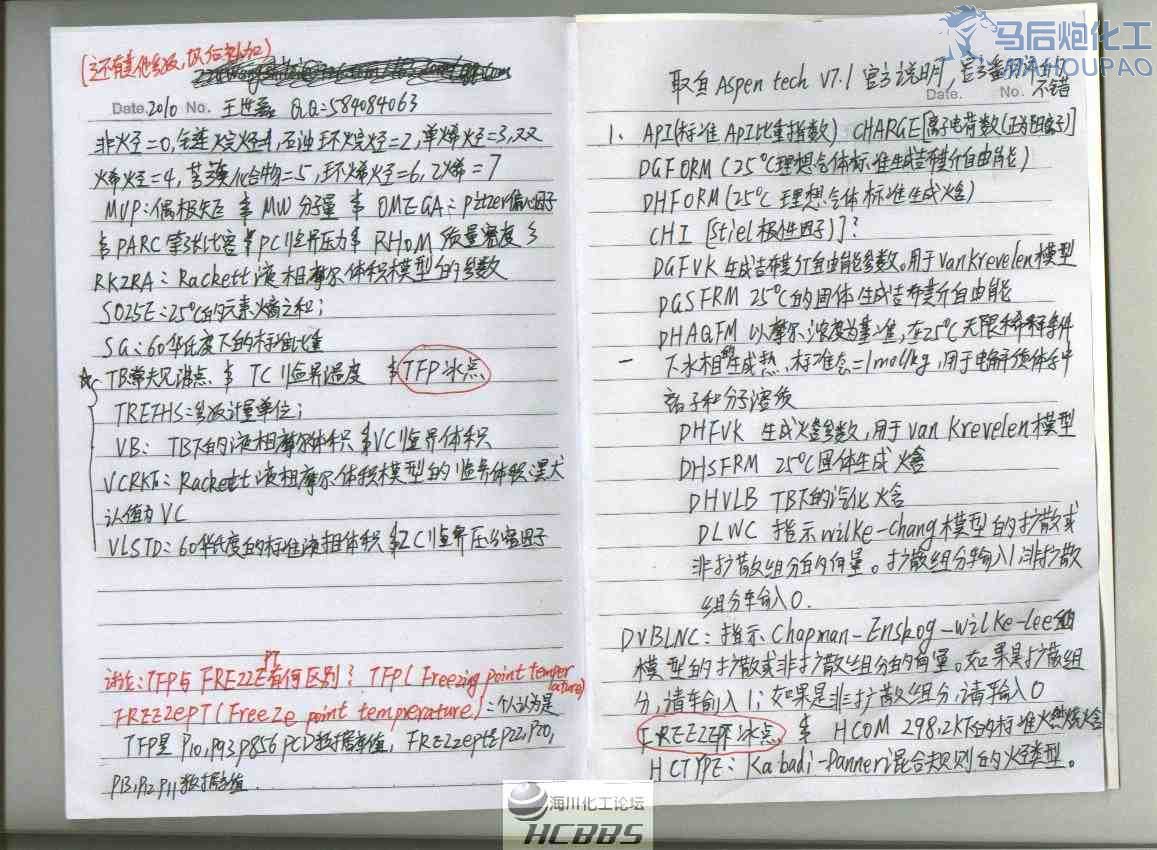 (还有其他参数,以后添加)
Date. 2010 No. 王世磊 QQ:584084063
非火烃=0,链烷烃=1,石油环烷烃=2,单烯烃=3,双
烯烃=4,芳香化合物=5,环烯烃=6,乙烯=7
MUP:偶极矩 MW 分子量 OMEGA:Pitzer偏心因子
PARC 等张比容 PC临界压力 RHOM 质量密度
RKZRA:Rackett液相摩尔体积模型的参数
SO25E:25℃的元素熵之和;
SG:60华氏度下的标准比重
☆ TB常沸点 TC 临界温度 TFP冰点
TREFHS:参数计量单位;
VB: TB下的液相摩尔体积 VC临界体积
VCRKT:Rackett液相摩尔体积模型的临界体积;默
认值为VC
VLSTD:60华氏度的标准液相体积 ZC临界压缩因子
PT
讨论:TFP与FREEZE有何区别? TFP(Freezing point temper
ature)
FREEZEPT(Freeze point temprerature):个人认为是
TFP是P10,P93,P856 PCD数据库值, FREEZEPT是P22,P20,
P13,P12,P11数据库值.
取自Aspen tech V7.1官方说明,
不错
Date. No.
1、API(标准API比重指数) CHARGE[离子电荷数(正阳阴离子)]
DGFORM(25℃理想气体标准生成吉布斯自由能)
DHFORM(25℃ 理想气体标准生成焓)
CHI [Stiel极性因子)]?
DGFVK 生成吉布斯自由能参数。用于Van Krevelen模型
DGSFRM 25℃的固体生成吉布斯自由能
DHAQFM 以摩尔浓度为基准,在25℃无限稀释条件
下水相的生成热、标准态=1mol/kg,用于电解质体系中
离子和分子溶质
DHFVK 生成焓参数,用于Van Krevelen模型
DHSFRM 25℃固体生成焓
DHVLB TB下的汽化焓
DLWC 指示wilke-chang模型的扩散或
非扩散组分的向量。扩散组分输入1;非扩散
组分输入0.
DVBLNC:指示Chapman-Enskog-wilke-lee的
模型的扩散或非扩散组分的向量。如果是扩散组
分,请输入1;如果是非扩散组分,请输入0
FREEZEPT冰点 HCOM 298.2K下的标准燃烧焓
HCTYPE:Kabadi-Danner混合规则的烃类型。
马后炮化工
MAHOUPAO
海川化工论坛
HCBBS